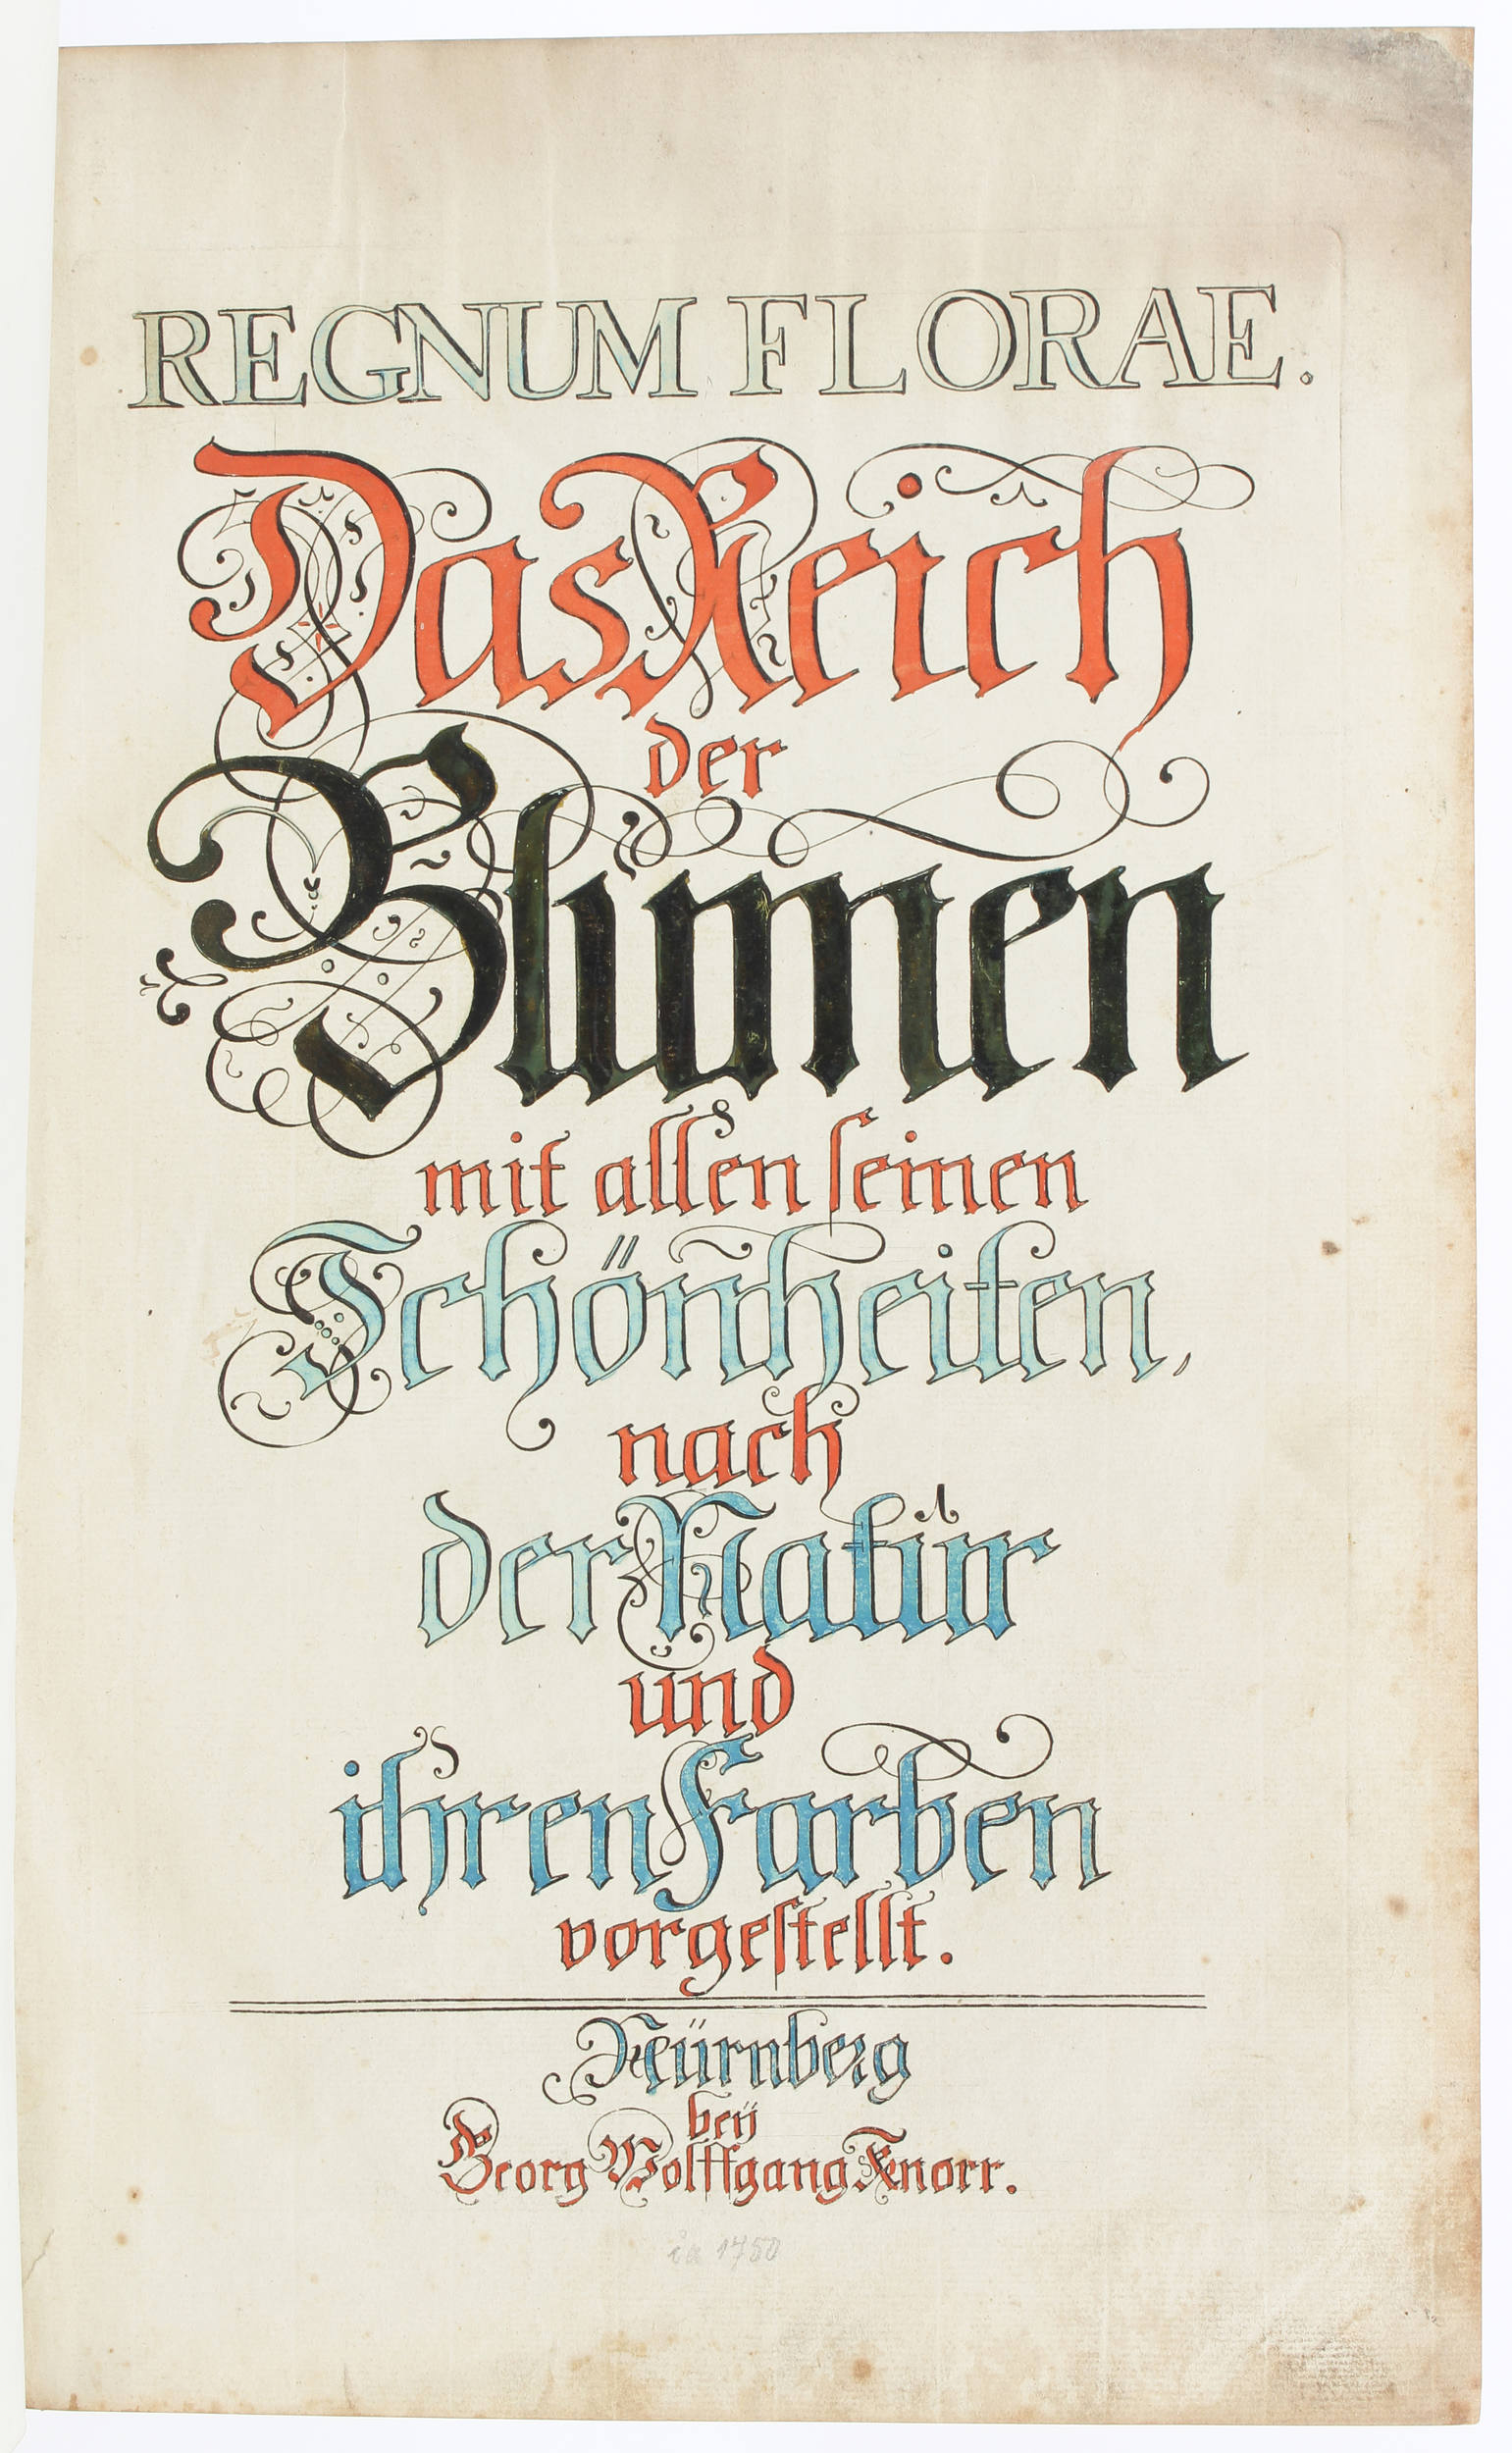 REGNUM FLORAE.
Das Reich
der
Blumen
mit allen seinen
Schönheiten,
nach
der Natur
und
ihren Farben
vorgestellt.
Nürnberg
beÿ
Georg Wolffgang Knorr.
ca 1750